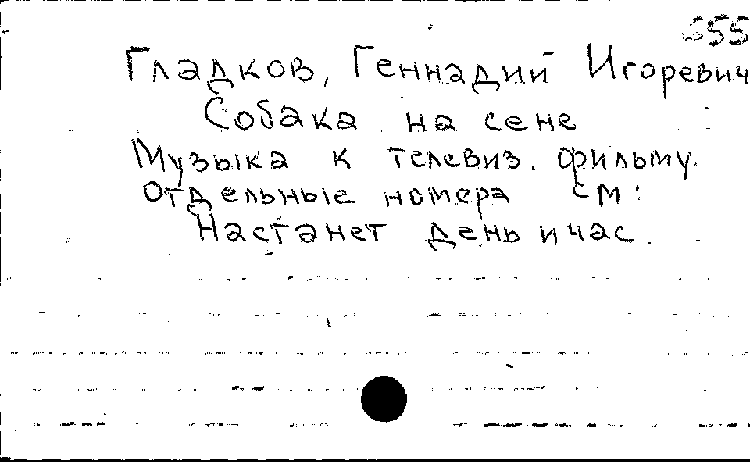 555
Гладков, Геннадий Игоревич
Собака на сене
Музыка к телевиз. фильму.
Отдельные номера см:
Настанет день и час.